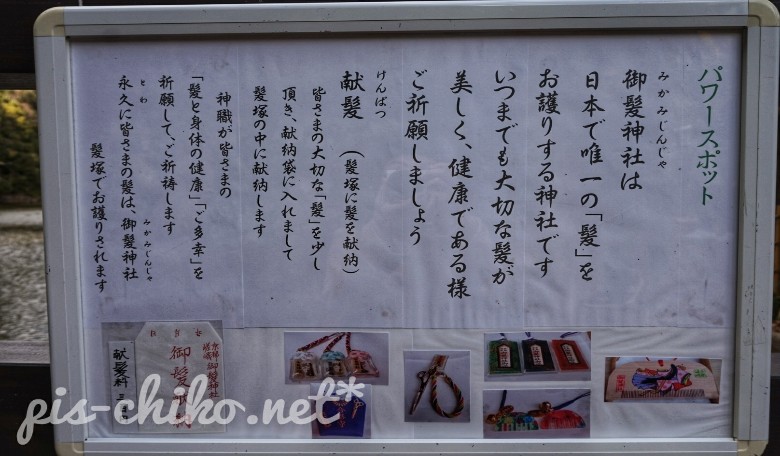 パワースポット
みかみじんじゃ
御髪神社は
日本で唯一の「髪」を
お護りする神社です
いつまでも大切な髪が
美しく、健康である様
ご祈願しましょう
けんぱつ
献髪 (髪塚に髪を献納)
皆さまの大切な「髪」を少し
頂き、献納袋に入れまして
髪塚の中に献納します
神職が皆さまの
「髪と身体の健康」「ご多幸」を
祈願して、ご祈祷します
とわ
みかみじんじゃ
永久に皆さまの髪は、御髪神社
髪塚でお護りされます
京都嵯峨 御髪神社
御髪
献髪料
pis-chiko.net*